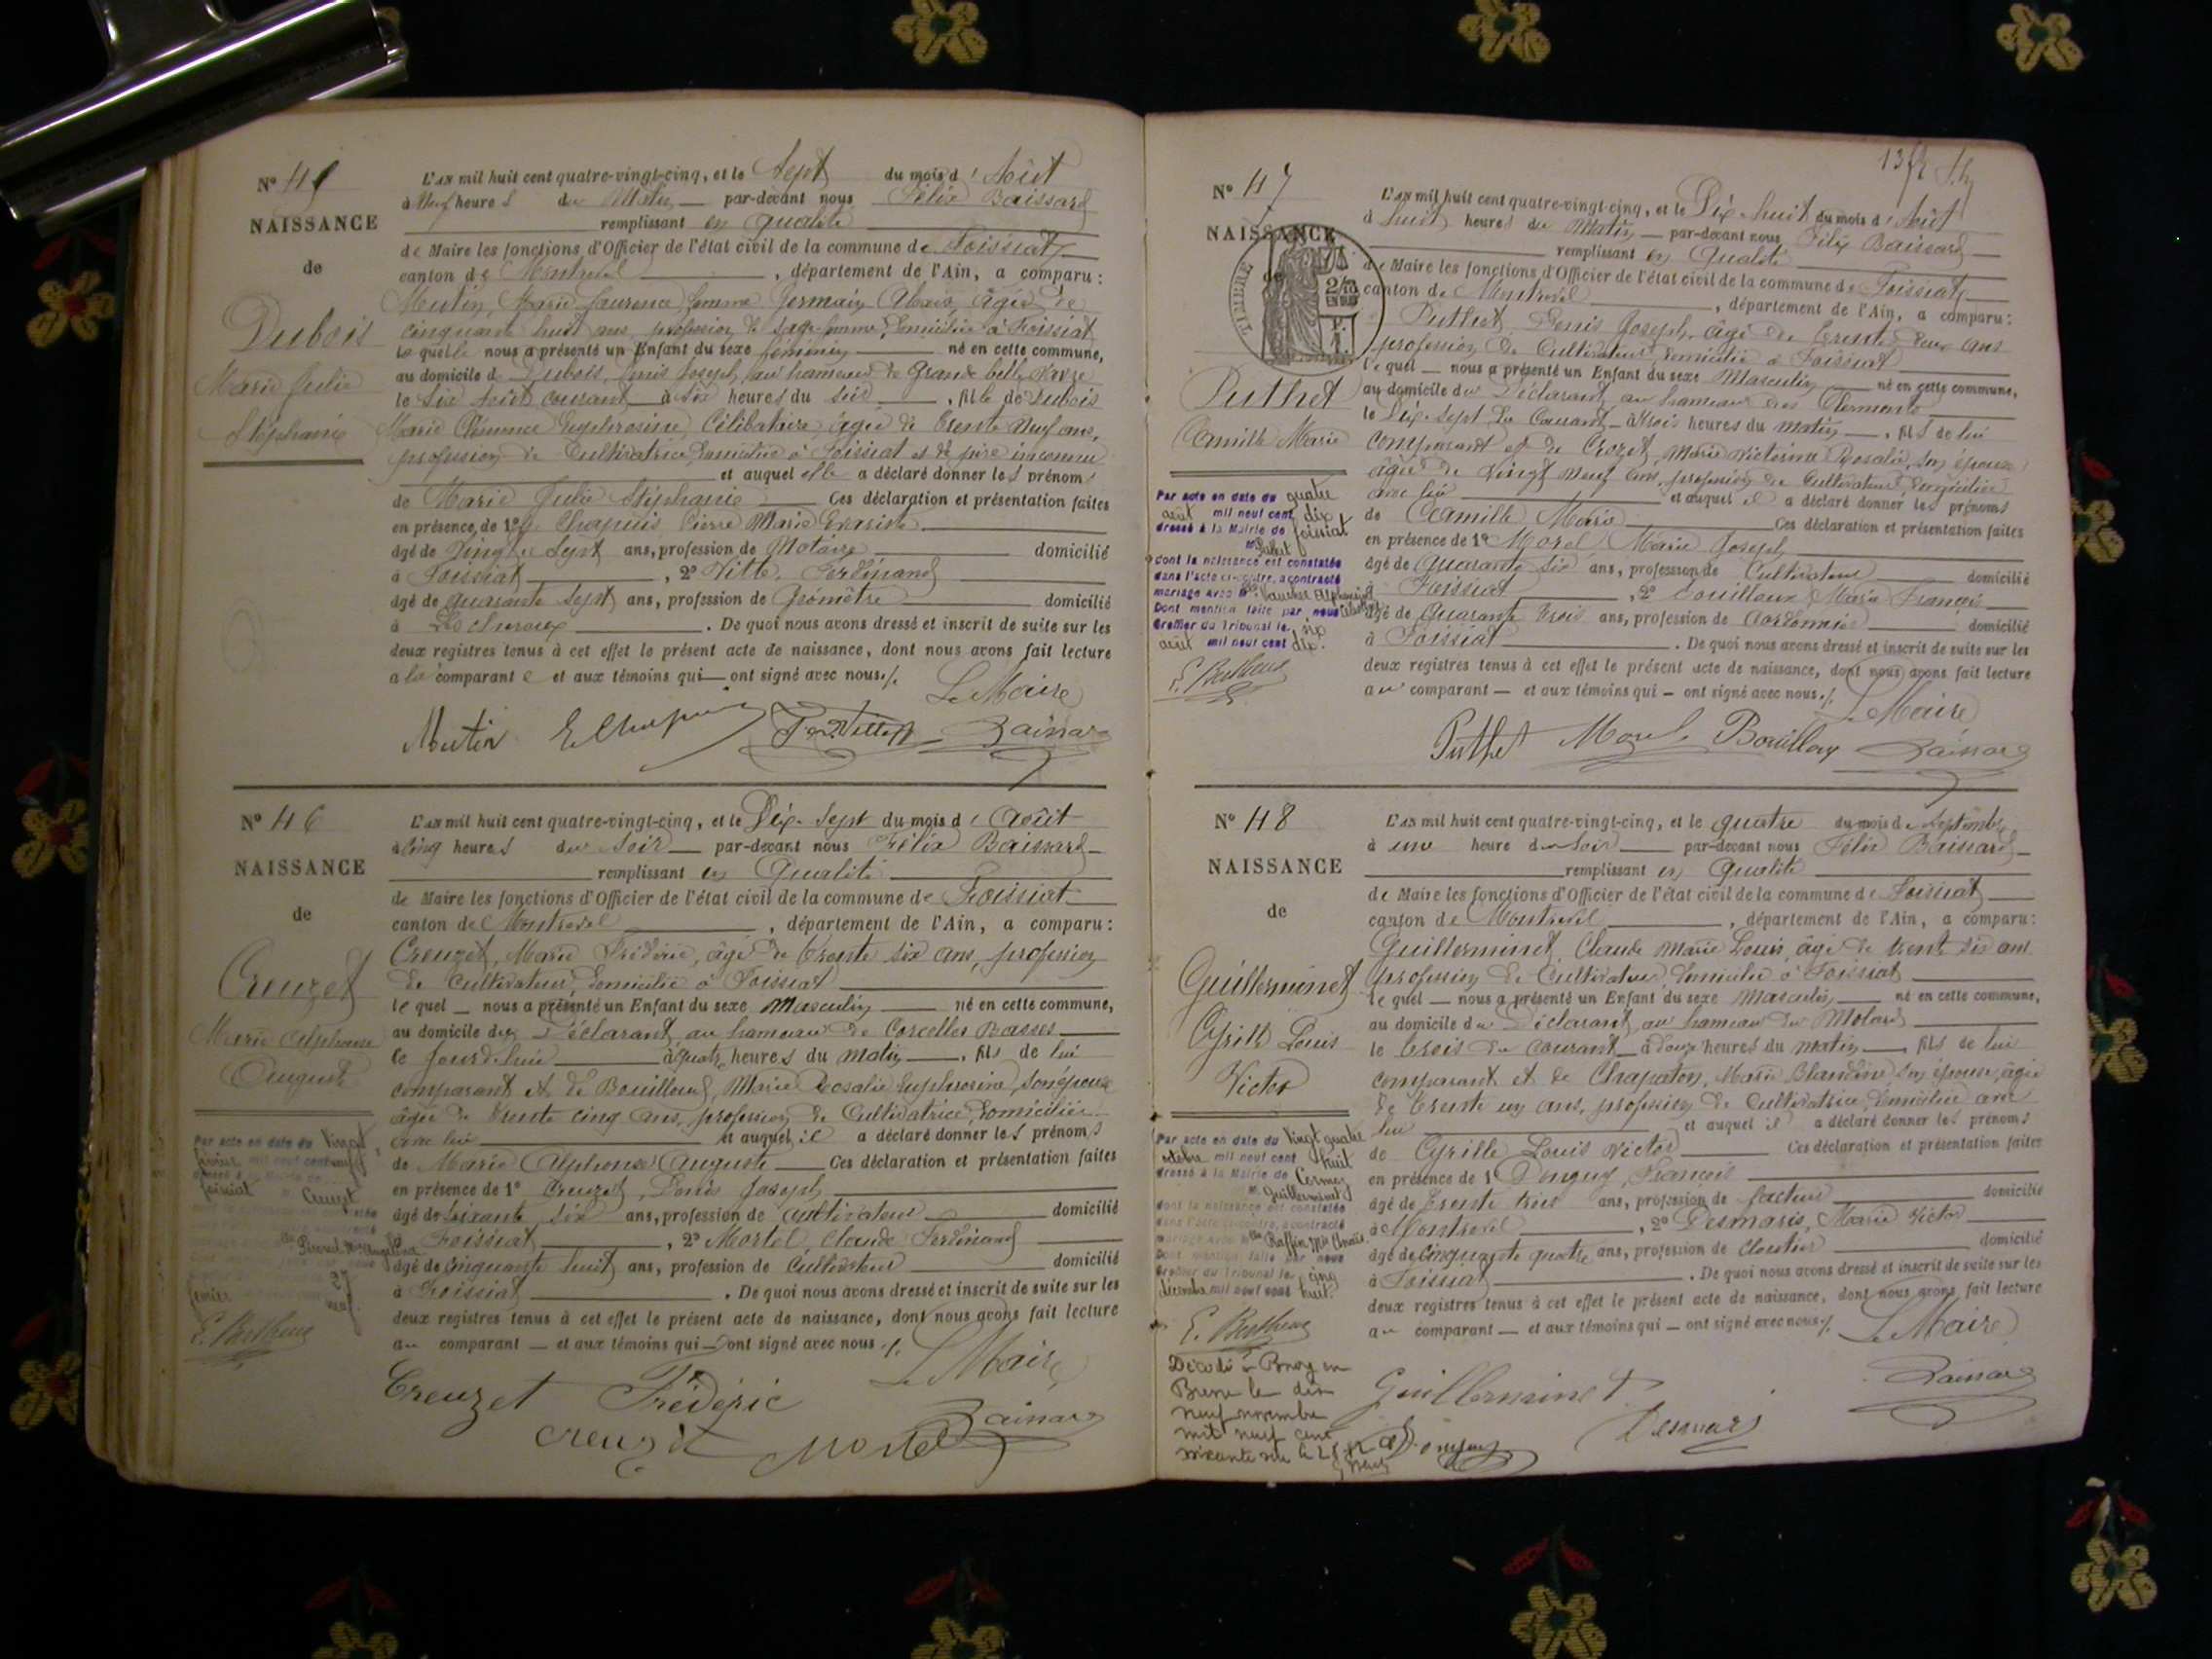 N° 45
NAISSANCE
de
Dubois
Marie Julie
Stéphanie
L'AN mil huit cent quatre-vingt-cinq, et le Sept du mois d'Août
à Neuf heures du Matin par-devant nous Félix Baissard
remplissant en qualité
de Maire les fonctions d'Officier de l'état civil de la commune de Foissiat
canton de Montrevel, département de l'Ain, a comparu:
Mutin, Marie Laurence, femme Germain Alexis, âgée de
cinquante huit ans, profession de sage-femme, domiciliée à Foissiat
laquelle nous a présenté un Enfant du sexe féminin né en cette commune,
au domicile de Dubois, Denis Joseph, au hameau de Grande belle
le Six Août courant à Six heures du soir, fille de Dubois
Marie Clémence Euphrosine, Célibataire, âgée de Trente Neuf ans,
profession de Cultivatrice, domiciliée à Foissiat et de père inconnu
et auquel elle a déclaré donner les prénoms
de Marie Julie Stéphanie Ces déclaration et présentation faites
en présence de 1° Chapuis Pierre Marie Evariste
âgé de Vingt Sept ans, profession de Notaire domicilié
à Foissiat, 2° Vitte, Ferdinand
âgé de quarante Sept ans, profession de Géomètre domicilié
à Lescheroux. De quoi nous avons dressé et inscrit de suite sur les
deux registres tenus à cet effet le présent acte de naissance, dont nous avons fait lecture
à la comparante et aux témoins qui ont signé avec nous.
Le Maire
Mutin E. Chapuis Fer. Vitte Baissard
N° 46
NAISSANCE
de
Creuzet
Marie Alphonse
Auguste
L'AN mil huit cent quatre-vingt-cinq, et le Dix-Sept du mois d'Août
à Cinq heures du Soir par-devant nous Félix Baissard
remplissant en Qualité
de Maire les fonctions d'Officier de l'état civil de la commune de Foissiat
canton de Montrevel, département de l'Ain, a comparu:
Creuzet, Marie Frédéric, âgé de trente six ans, profession
de Cultivateur, domicilié à Foissiat
lequel nous a présenté un Enfant du sexe Masculin né en cette commune,
au domicile du Déclarant, au hameau de Corcelles Basses
le Jourd'hui à quatre heures du matin, fils de lui
comparant et de Bouilloux, Marie Rosalie Euphrosine, son épouse
âgée de trente cinq ans, profession de Cultivatrice, domiciliée
avec lui et auquel il a déclaré donner les prénoms
de Marie Alphonse Auguste Ces déclaration et présentation faites
en présence de 1° Creuzet, Denis Joseph
âgé de soixante six ans, profession de cultivateur domicilié
à Foissiat, 2° Mortel, Claude Ferdinand
âgé de Cinquante huit ans, profession de Cultivateur domicilié
à Foissiat. De quoi nous avons dressé et inscrit de suite sur les
deux registres tenus à cet effet le présent acte de naissance, dont nous avons fait lecture
au comparant et aux témoins qui ont signé avec nous.
Le Maire
Creuzet Frédéric
Creuzet Mortel Baissard
Par acte en date du Vingt
février mil neuf cent neuf
foissiat Creuzet
E. Berthoux
N° 47
NAISSANCE
de
Puthet
Camille Marie
L'AN mil huit cent quatre-vingt-cinq, et le Dix-huit du mois d'Août
à huit heures du Matin par-devant nous Félix Baissard
remplissant en Qualité
de Maire les fonctions d'Officier de l'état civil de la commune de Foissiat
canton de Montrevel, département de l'Ain, a comparu:
Puthet, Denis Joseph, âgé de trente deux ans
profession de Cultivateur, domicilié à Foissiat
lequel nous a présenté un Enfant du sexe Masculin né en cette commune,
au domicile du Déclarant au hameau des Clermonts
le Dix-sept du Courant à trois heures du matin, fils de lui
comparant et de Crozet, Marie Victorine Rosalie, son épouse
âgée de Vingt neuf ans, profession de Cultivateur, domiciliée
avec lui et auquel il a déclaré donner les prénoms
de Camille Marie Ces déclaration et présentation faites
en présence de 1° Morel Marie Joseph
âgé de quarante six ans, profession de Cultivateur domicilié
à Foissiat, 2° Bouilloux, Marie François
âgé de Quarante trois ans, profession de Cordonnier domicilié
à Foissiat. De quoi nous avons dressé et inscrit de suite sur les
deux registres tenus à cet effet le présent acte de naissance, dont nous avons fait lecture
au comparant et aux témoins qui ont signé avec nous.
Le Maire
Puthet Morel Bouilloux Baissard
Par acte en date du quatre
août mil neuf cent dix
dressé à la Mairie de foissiat
M. Puthet
dont la naissance est constatée
dans l'acte ci-contre, a contracté
mariage avec Mlle
Dont mention faite par nous
Greffier du Tribunal le six
août mil neuf cent dix.
E. Berthoux
N° 48
NAISSANCE
de
Guillerminet
Cyrille Louis
Victor
L'AN mil huit cent quatre-vingt-cinq, et le quatre du mois de Septembre
à une heure du Soir par-devant nous Félix Baissard
remplissant en Qualité
de Maire les fonctions d'Officier de l'état civil de la commune de Foissiat
canton de Montrevel, département de l'Ain, a comparu:
Guillerminet, Claude Marie Louis, âgé de trente six ans
profession de Cultivateur, domicilié à Foissiat
lequel nous a présenté un Enfant du sexe Masculin né en cette commune,
au domicile du Déclarant, au hameau du Molard
le trois du courant à douze heures du matin, fils de lui
comparant et de Chapaton, Marie Blandine son épouse, âgée
de trente un ans, profession de Cultivatrice, domiciliée avec
lui et auquel il a déclaré donner les prénoms
de Cyrille Louis Victor Ces déclaration et présentation faites
en présence de 1° Donguy, François
âgé de trente trois ans, profession de facteur domicilié
à Montrevel, 2° Desmaris, Marie Victor
âgé de Cinquante quatre ans, profession de Cloutier domicilié
à Foissiat. De quoi nous avons dressé et inscrit de suite sur les
deux registres tenus à cet effet le présent acte de naissance, dont nous avons fait lecture
au comparant et aux témoins qui ont signé avec nous.
Le Maire
Guillerminet Desmaris Baissard
Par acte en date du Vingt quatre
octobre mil neuf cent huit
dressé à la Mairie de Cormoz
M. Guillerminet
dont la naissance est constatée
dans l'acte ci-contre, a contracté
mariage avec Mlle Raffin
Dont mention faite par nous
Greffier du Tribunal le cinq
décembre mil neuf cent huit.
E. Berthoux
Décédé à Bourg en
Bresse le dix
neuf novembre
mil neuf cent